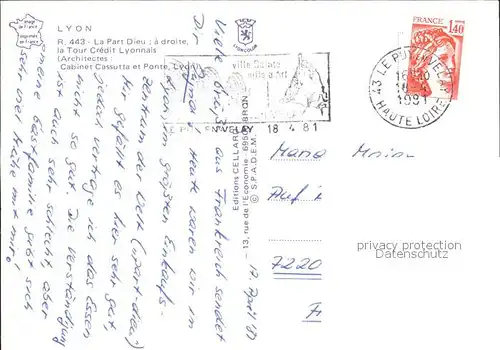 LYON
R. 443 - La Part Dieu ; à droite,
la Tour Crédit Lyonnais
(Architectes :
Cabinet Cassutta et Ponte, Lyon)
image de France
imprimée en France
LYONCOLOR
ville Sainte
ville d'Art
LE PUY EN VELAY 18 - 4 81
FRANCE
1,40
43 LE PUY EN VELAY
18 - 4
1981
HAUTE LOIRE
Editions CELLARD
- 13, rue de l'Economie - 69500 BRON
© S.P.A.D.E.M.
17. April 81
Viele Grüße aus Frankreich sendet
Dir Heute waren wir in
Lyon, im größten Einkaufs-
zentrum der Welt (
Mir gefällt es hier sehr gut,
jedoch vertrage ich das Essen
nicht so gut. Die Verständigung
ist auch sehr schlecht, aber
meine Gastfamilie gibt sich
sehr viel Mühe mit mir!
Auf
7220
privacy protection
Datenschutz